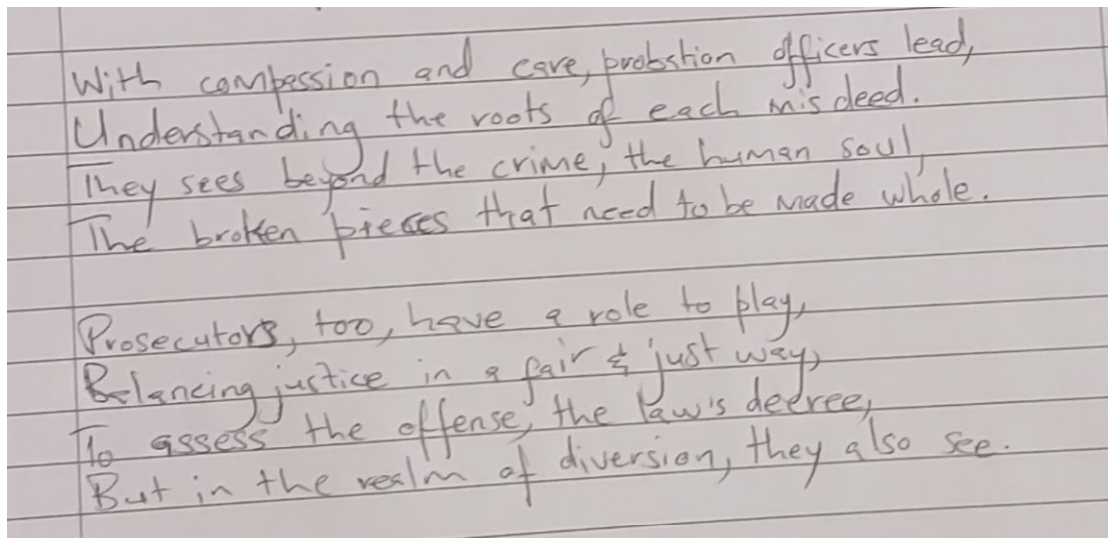 With compassion and care, probation officers lead,
Understanding the roots of each misdeed.
They sees beyond the crime, the human soul,
The broken pieces that need to be made whole.
Prosecutors, too, have a role to play,
Balancing justice in a fair & just way,
To assess the offense, the law's decree,
But in the realm of diversion, they also see.